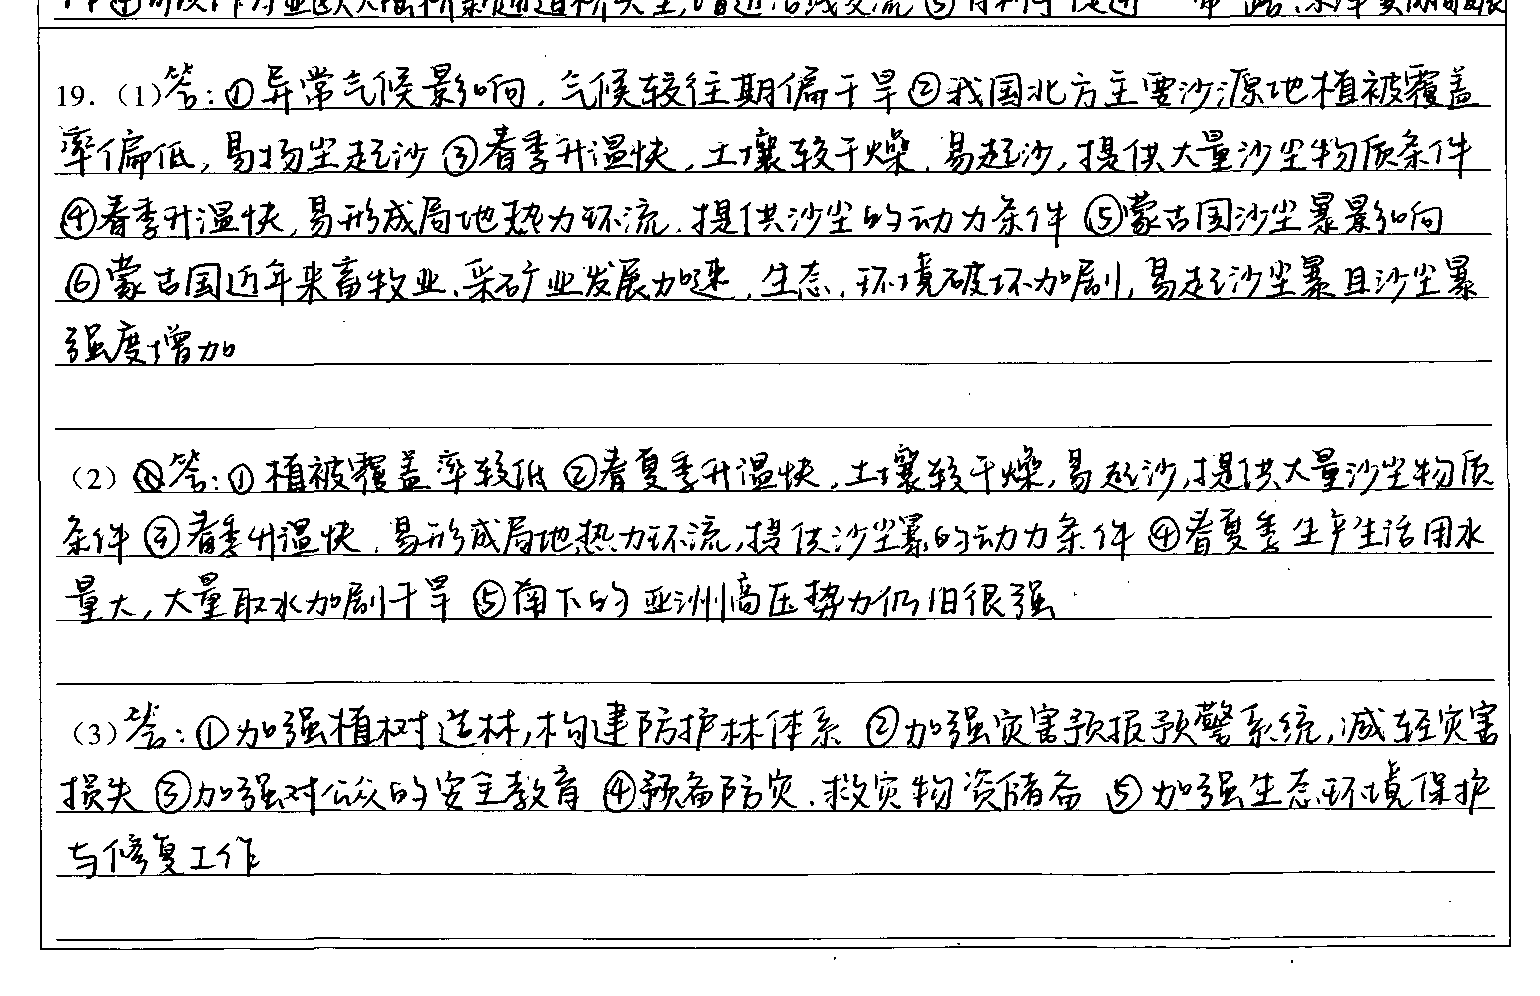 19.（1）答：①异常气候影响，气候较往期偏干旱②我国北方主要沙源地植被覆盖
率偏低，易扬尘起沙③春季升温快，土壤较干燥，易起沙，提供大量沙尘物质条件
④春季升温快，易形成局地热力环流，提供沙尘的动力条件⑤蒙古国沙尘暴影响
⑥蒙古国近年来畜牧业、采矿业发展加速，生态、环境破坏加剧，易起沙尘暴且沙尘暴
强度增加
（2）答：①植被覆盖率较低②春夏季升温快，土壤较干燥，易起沙，提供大量沙尘物质
条件③春季升温快，易形成局地热力环流，提供沙尘暴的动力条件④春夏季生产生活用水
量大，大量取水加剧干旱⑤南下的亚洲高压势力仍旧很强
（3）答：①加强植树造林，构建防护林体系②加强灾害预报预警系统，减轻灾害
损失③加强对公众的安全教育④预备防灾、救灾物资储备⑤加强生态环境保护
与修复工作